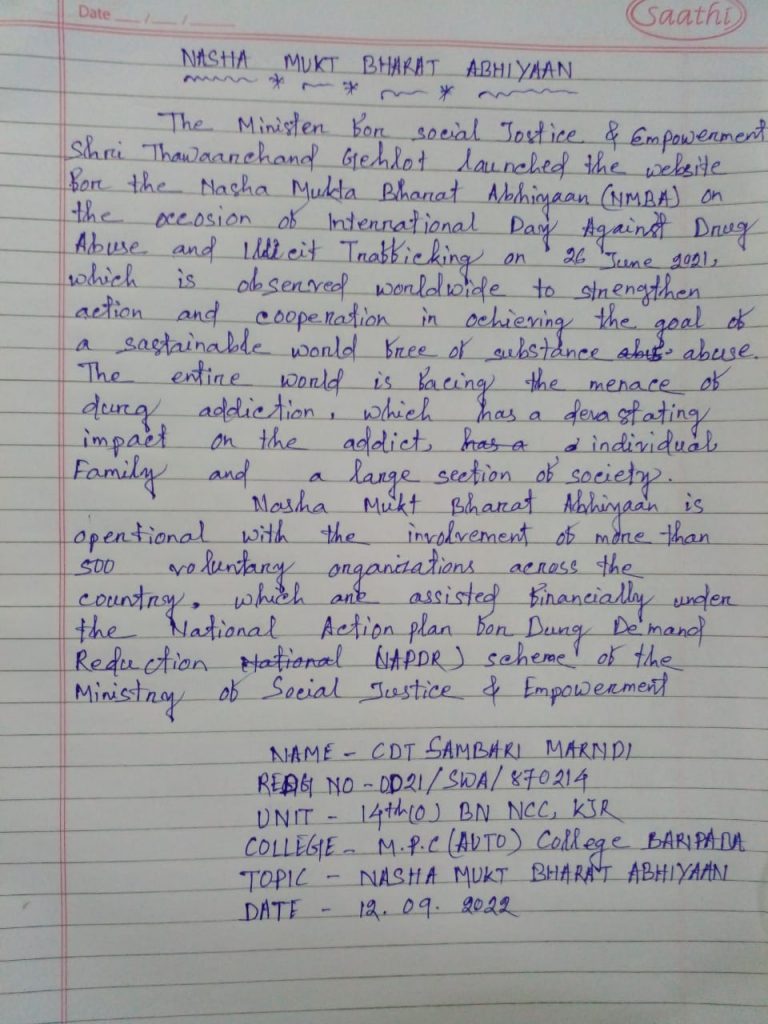 Date __/__/____
Saathi
NASHA MUKT BHARAT ABHIYAAN
The Minister for social Jostice & Empowerment
Shri Thawaarchand Gehlot launched the website
for the Nasha Mukta Bharat Abhiyaan (NMBA) on
the occosion of International Day Against Drug
Abuse and Illicit Trafficking on 26 June 2021,
which is observed worldwide to strengthen
action and cooperation in ochieving the goal of
a sastainable world free of substance abus abuse.
The entire world is facing the menace of
durg addiction, which has a devastating
impact on the addict, has a a individual
Family and a large section of society.
Nasha Mukt Bharat Abhiyaan is
opertional with the involvement of more than
500 voluntary organizations across the
country, which are assisted financially under
the National Action plan for Durg Demand
Reduction National (NAPDR) scheme of the
Ministry of Social Justice & Empowerment
NAME - CDT SAMBARI MARNDI
REDG NO - OD21/SWA/870214
UNIT - 14th(O) BN NCC, KJR
COLLEGE - M.P.C (AUTO) College BARIPADA
TOPIC - NASHA MUKT BHARAT ABHIYAAN
DATE - 12.09.2022